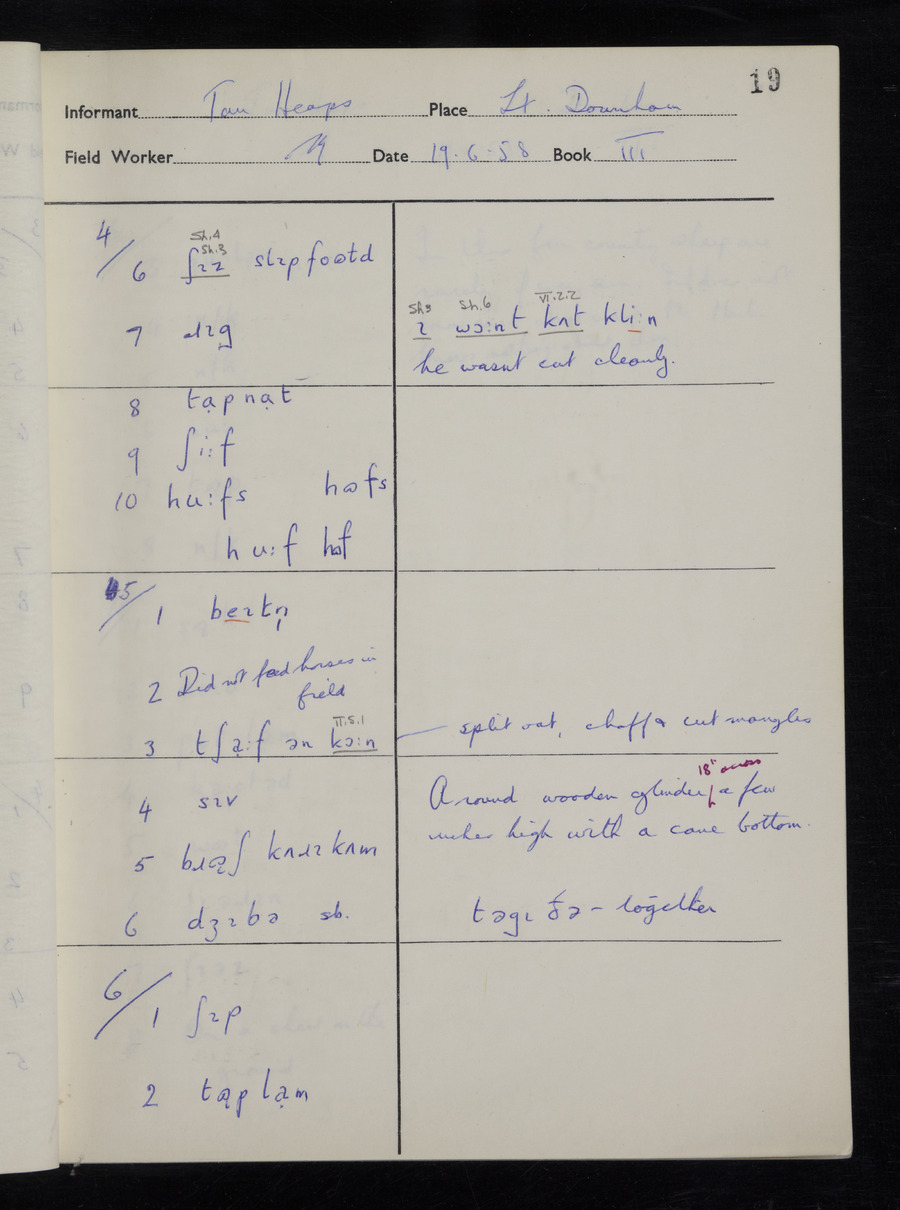 19
Informant Tom Heaps Place Lt. Downham
Field Worker Date 19.6.58 Book III
4/
Sh.4
Sh.3
6 ʃɪɪ slɪpfʊtd
7 ɹɪg
Sh9 Sh.6 VI.2.2
ɪ wɔ:nt kʌt kli:n
he wasnt cut cleanly.
8 tạpnạt
9 ʃi:f
10 hu:fs hʊfs
hu:f hʊf
5/ 1 beɪtn̩
2 Did not feed horses in
field
II.5.1
3 tʃạ:f ən kɔ:n
split oat, chaff & cut mangles
4 sɪv
18" across
A round wooden cylinder, a few
inches high with a cane bottom.
5 bɹạʃ kʌɹɪkʌm
6 dʒɪbə sb.
təgɪðə – together
6/ 1 ʃɪp
2 tạplạm